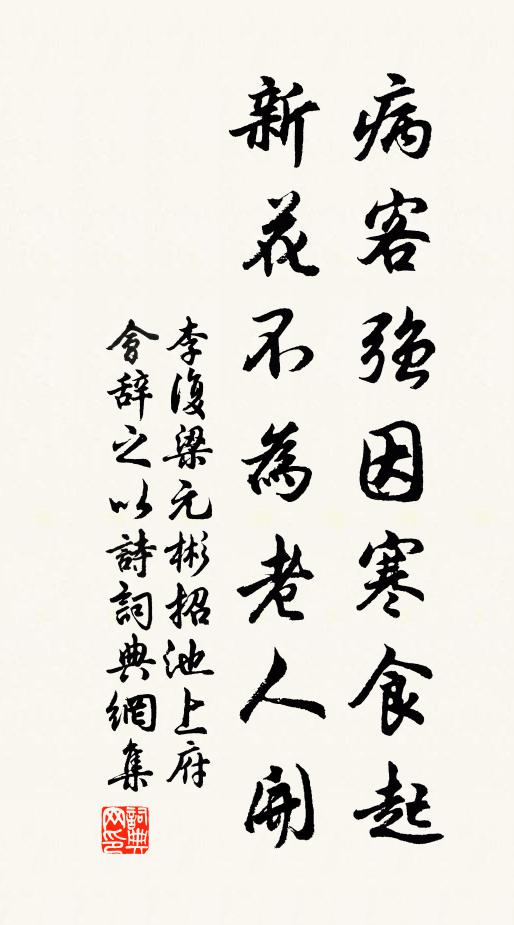 病客強因寒食起
新花不為老人開
李復梁元彬招池上府
會辞之以詩詞典網集
詞典网印